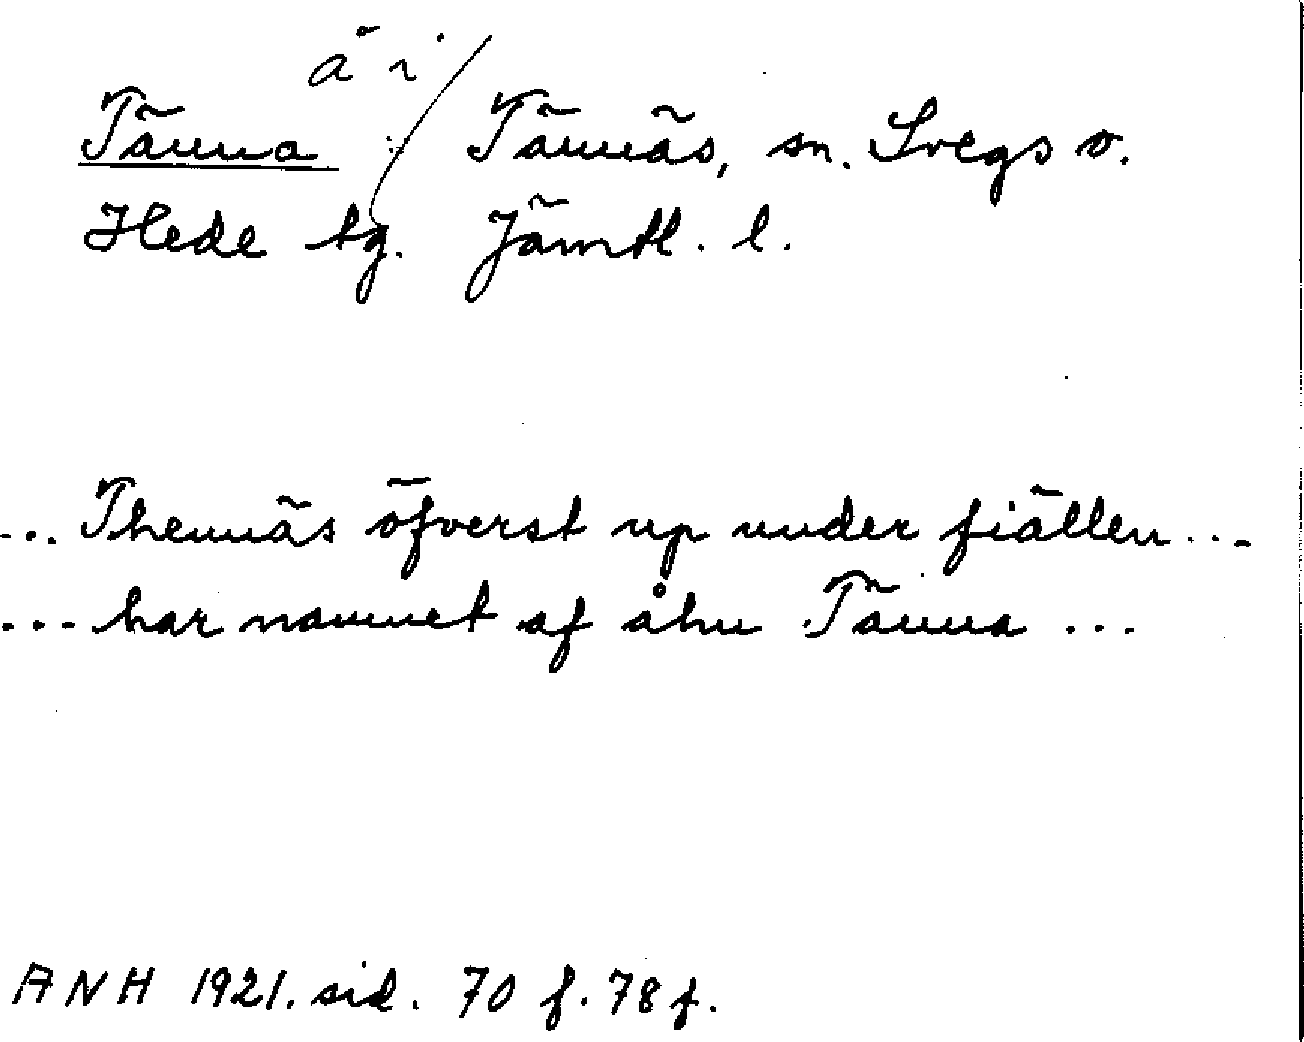 å i
Tänna : Tännäs, sn. Svegs o.
Hede tg. Jämtl. l.
... Thennäs öfverst up under fiällen ...
... har namnet af åhn Tänna ...
ANH 1921. sid. 70 f. 78 f.